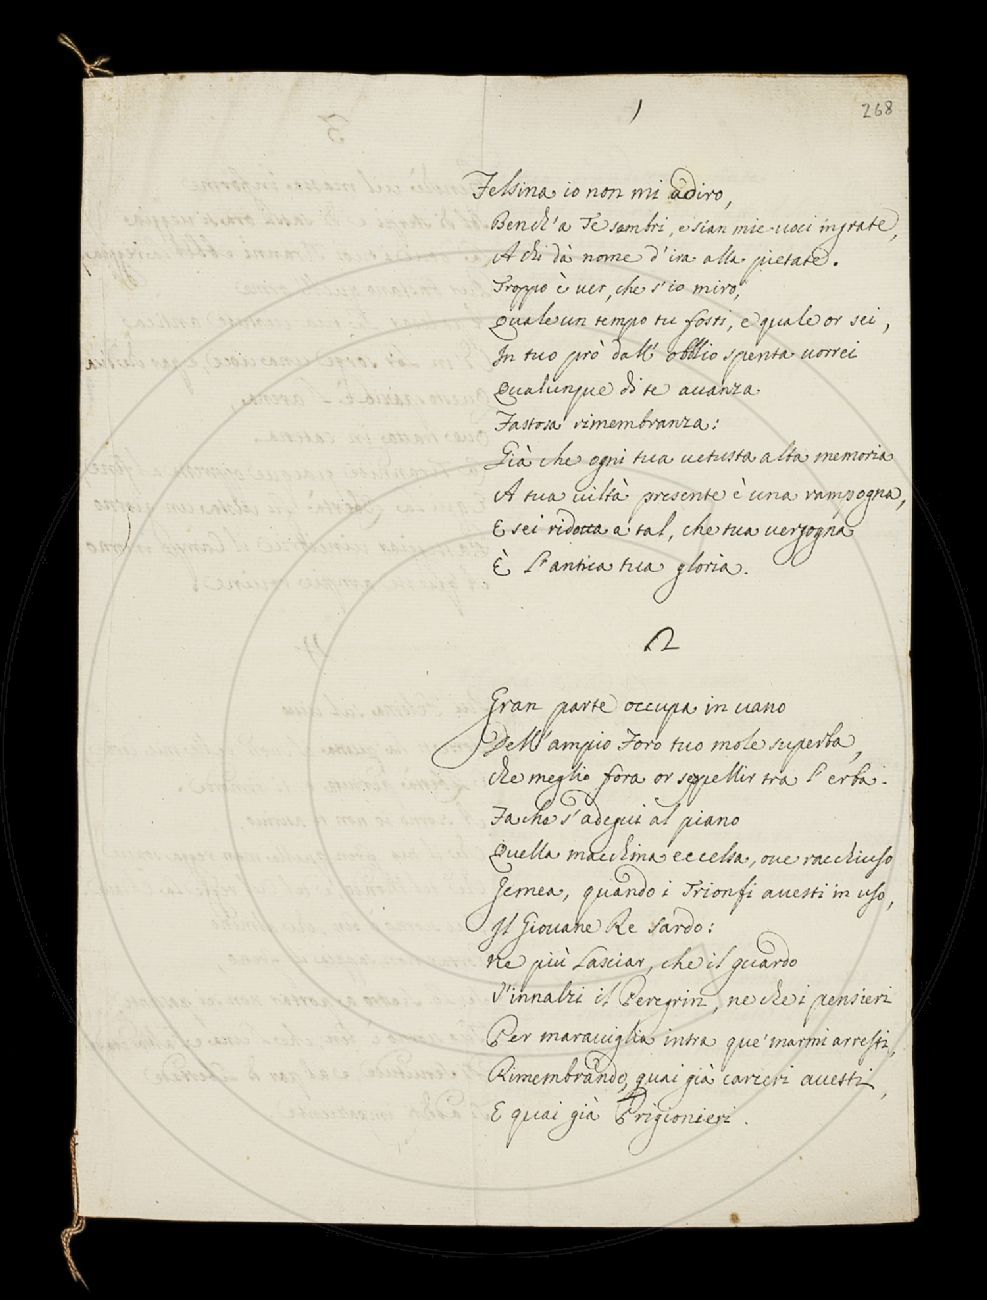 268
1
Felsina io non mi adiro,
Bench'a Te sembri, e sian mie voci ingrate,
A chi dà nome d'ira alla pietate.
Troppo è ver, che s'io miro,
Quale un tempo tu fosti, e quale or sei,
In tuo prò dall' obblio spenta vorrei
Qualunque di te avanza
Fastosa rimembranza:
Già che ogni tua vetusta alta memoria
A tua viltà presente è una rampogna,
E sei ridotta a tal, che tua vergogna
È l'antica tua gloria.
2
Gran parte occupa in vano
Dell'ampio Foro tuo mole superba,
Che meglio fora or seppellir tra l'erba.
Fa che s'adegui al piano
Quella macchina eccelsa, ove racchiuso
Gemea, quando i Trionfi avesti in uso,
Il Giovane Re Sardo:
Ne più lasciar, che il guardo
S'innalzi il Peregrin, ne che i pensieri
Per maraviglia intra que' marmi arresti,
Rimembrando, quai già carceri avesti,
E quai già Prigionieri.